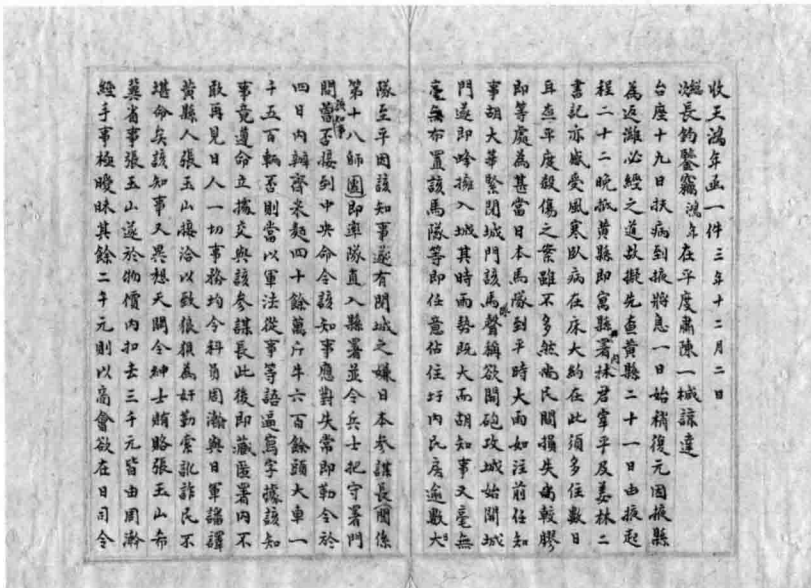 收王鴻年函一件 三年十二月二日
總次長鈞鑒竊鴻年在平度肅陳一椷諒達
台座十九日扶病到掖將息一日始稍復元因掖縣
為返濰必經之道故擬先查黃縣二十一日由掖起
程二十二晚抵黃縣即寓縣署同林君肇平及姜林二
書記亦感受風寒臥病在床大約在此須多住數日
耳查平度殺傷之案雖不多然商民間損失尚較膠
即等處為甚當日本馬隊到平時大雨如注前任知
事胡大華緊閉城門該馬隊聲稱欲開砲攻城始開城
門遂即蜂擁入城其時雨勢既大而胡知事又毫無
毫無布置該馬隊等即任意佔住圩內民房逾數日大
隊至平因該知事遂有閉城之嫌日本參謀長關係
第十八師團即率隊直入縣署並令兵士把守署門
問該知事曾否接到中央命令該知事應對失常即勒令於
四日內辦齊米麵四十餘萬斤牛六百餘頭大車一
千五百輛否則當以軍法從事等語逼寫字據該知
事竟遵命立據交與該參謀長此後即藏匿署內不
敢再見日人一切事務均令科員周瀚與日軍譯
黃縣人張玉山接洽以致狼狽為奸勒索訛詐民不
堪命矣該知事又異想天開令紳士賄賂張玉山希
冀省事張玉山遂於物價內扣去三千元皆由周瀚
經手事極曖昧其餘二千元則以商會欲在日司令